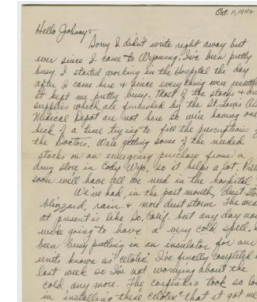 Oct. 11, 1942
Hello Johnny:
Sorry I didn't write right away but
ever since I came to Wyoming, I've been pretty
busy. I started working in the Hospital the day
after I came here & since everything were
kept me pretty busy. Most of the stocks &
supplies which are furnished by the St. Louis
Medical Depot are not here so we're having one
heck of a time trying to fill the prescriptions of
the Doctors. We're getting some of the needed
stocks on an emergency purchase from a
drug store in Cody, Wyo. so it helps a lot.
soon will have all we need in the hospital.
We've had, in the past month, dust
blizzard, rain & more dust storm. The
at present is like So. Calif. but any day now
we're going to have a very cold spell.
been busy putting in an insulator for our
known as "celotex" I've finally completed
last week so I'm not worrying about the
cold, any more. The carpenters took so long
in installing these "celotex" that it got me